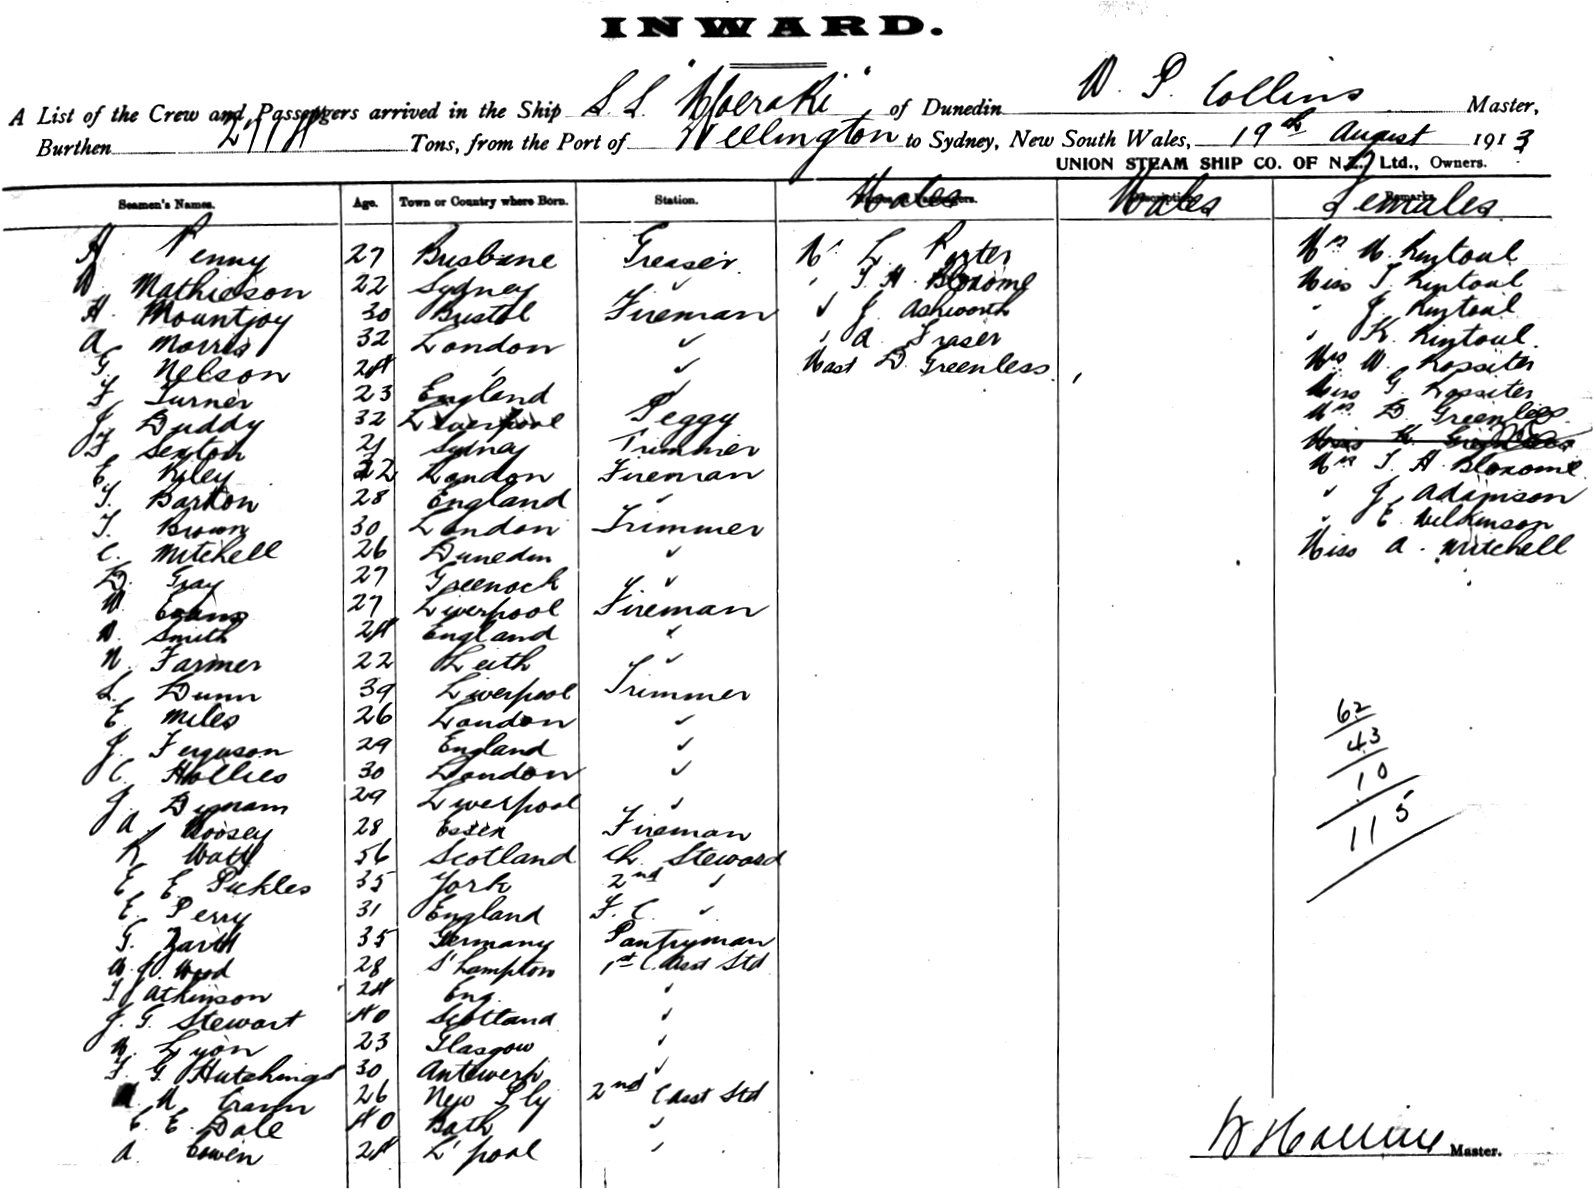 INWARD.
A List of the Crew and Passengers arrived in the Ship S.S. "Moeraki" of Dunedin W. P. Collins Master,
Burthen Tons, from the Port of Wellington to Sydney, New South Wales, 19th August 1913
UNION STEAM SHIP CO. OF N.Z. Ltd., Owners.
Seamen's Names. Age. Town or Country where Born. Station. Males Males Females
A Penny 27 Brisbane Greaser Mr L. Porter Mrs M. Rintoul
D. Mathieson 22 Sydney " " T. H. Bloxome Miss T. Rintoul
H. Mountjoy 30 Bristol Fireman " J. Ashworth " J. Rintoul
A. Morris 32 London " " A. Fraser " K. Rintoul
G. Nelson 24 " " Mast D. Greenless Mrs W. Rossiter
F. Turner 23 England Miss G. Rossiter
J. Duddy 32 Liverpool Peggy Mrs D. Greenless
F. Sexton 21 Sydney Trimmer Miss K. Greenless
E. Riley 22 London Fireman Mrs T. H. Bloxome
T. Barton 28 England " " J. Adamson
T. Brown 30 London Trimmer " E. Wilkinson
C. Mitchell 26 Dunedin " Miss A. Mitchell
D. Gray 27 Greenock "
W. Evans 27 Liverpool Fireman
D. Smith 24 England "
N. Farmer 22 Leith "
S. Dunn 39 Liverpool Trimmer
E. Miles 26 London "
J. Ferguson 29 England "
C. Hollies 30 London "
J. Dignam 29 Liverpool "
A. Boosey 28 Essex Fireman
R. Watt 56 Scotland Ch. Steward
E. E. Pickles 35 York 2nd "
E. Perry 31 England F. C. "
G. 35 Germany Pantryman
W. J. Wood 28 S'hampton 1st C. Asst Std
T. Atkinson 24 Eng. "
J. G. Stewart 40 Scotland "
W. Lyon 23 Glasgow "
F. G. Hutchings 30 Antwerp "
W. 26 New Ply 2nd C Asst Std
C. E. Dale 40 Bath "
A. Cowen 24 L'pool "
62
43
10
115
W P Collins Master.